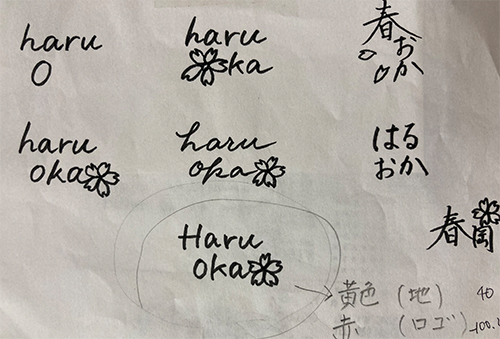 haru
O
haru
ka
春
おか
haru
oka
haru
oka
はる
おか
Haru
oka
春岡
黄色 (地) 40
赤 (ロゴ) -100.